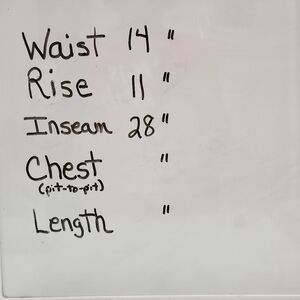 Waist 14 "
Rise 11 "
Inseam 28 "
Chest "
(pit-to-pit)
Length "